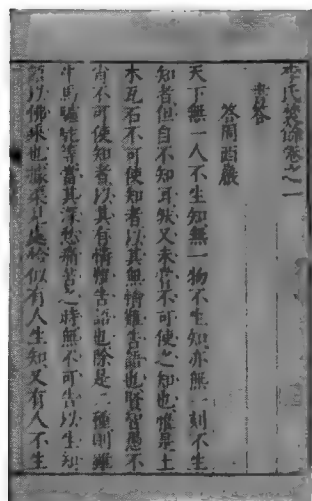 李氏焚書卷之一
書答
答周西巖
天下無一人不生知無一物不生知亦無一刻不生
知者但自不知耳然又未嘗不可使之知也惟是土
木瓦石不可使知者以其無情難告語也賢智愚不
肖不可使知者以其有情難告語也除是二種則雖
牛馬驢駝等當其深愁痛苦之時無不可告以生知
語以佛乘也據渠見處恰似有人生知又有人不生